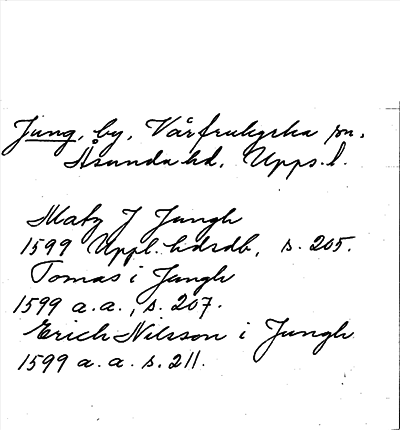 Jung, by, Vårfrukyrka sn,
Åsunda hd, Upps. l.
Matz J Jungh
1599 Uppl. hdrdb, s. 205.
Tomas i Jungh
1599 a. a., s. 207.
Erich Nilsson i Jungh
1599 a. a. s. 211.